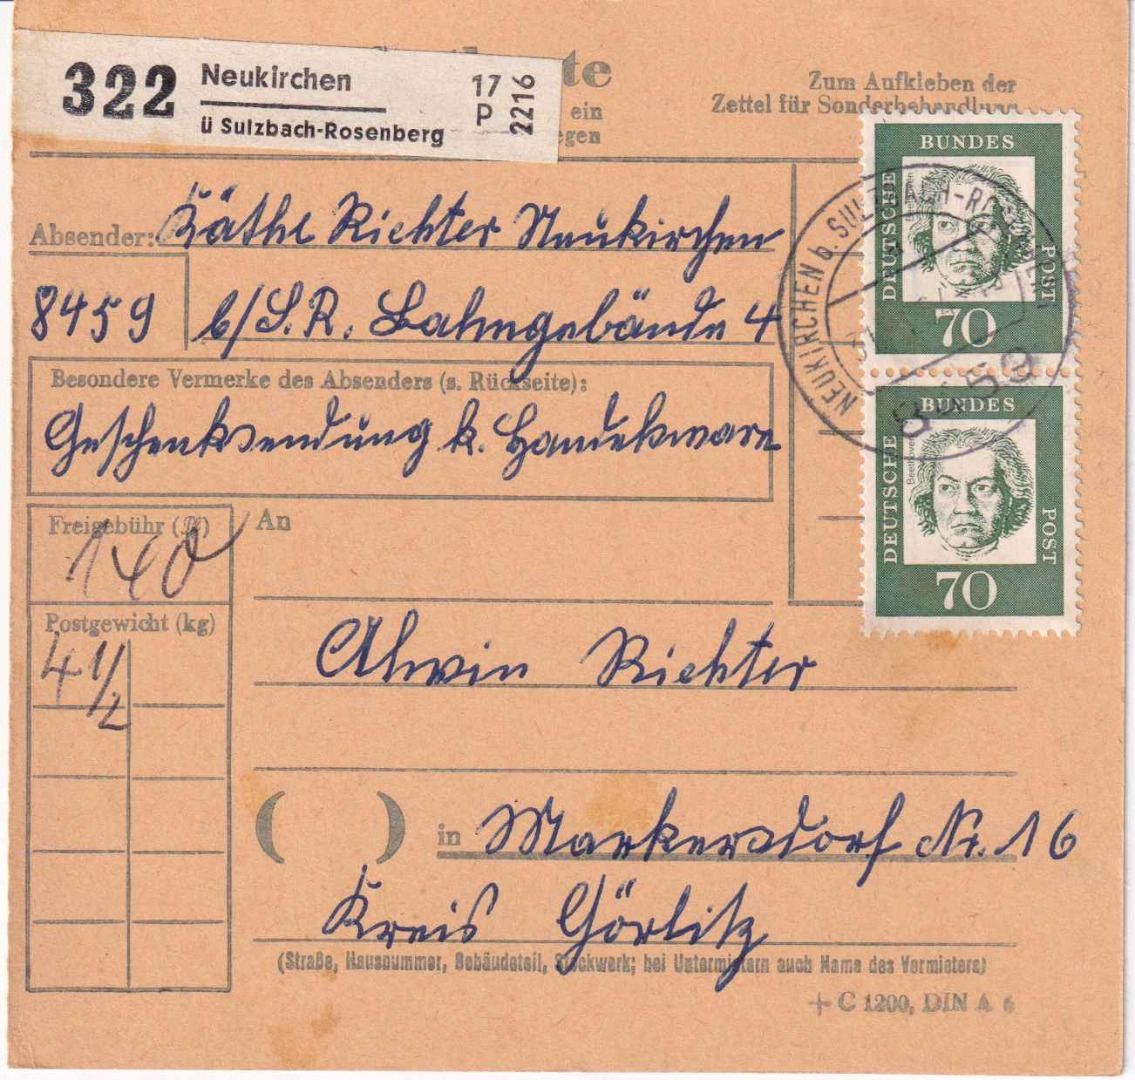 322 Neukirchen 17 P 2216
ü Sulzbach-Rosenberg
te
ein
egen
Zum Aufkleben der
Zettel für Sonderbehandlung
Absender: Käthe Richter Neukirchen
8459 b/S.R. Bahngebäude 4
Besondere Vermerke des Absenders (s. Rückseite):
Geschenksendung k. Handelsware
BUNDES
DEUTSCHE
POST
70
NEUKIRCHEN b. SULZBACH-ROSENBERG
8459
BUNDES
DEUTSCHE
Beethoven
POST
70
Freigebühr (₰)
140
An
Postgewicht (kg)
4 1/2
Alwin Richter
( ) in Markersdorf Nr. 16
Kreis Görlitz
(Straße, Hausnummer, Gebäudeteil, Stockwerk; bei Untermietern auch Name des Vermieters)
+ C 1200, DIN A 6